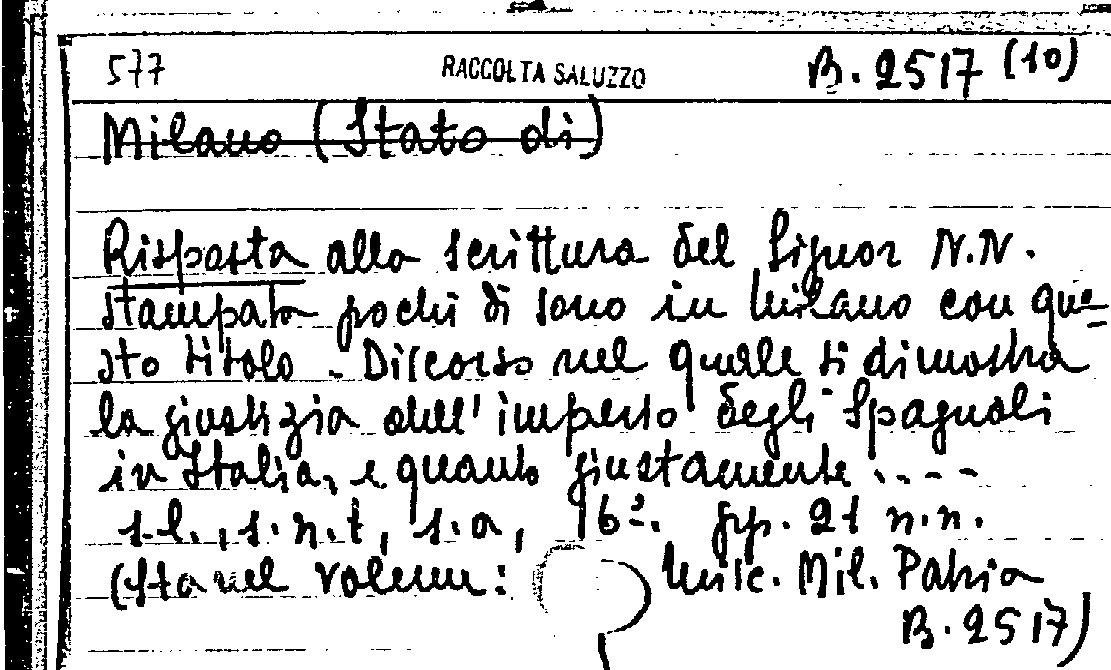 577 RACCOLTA SALUZZO B. 2517 (10)
Milano (Stato di)
Risposta alla scrittura del Signor N.N.
stampata pochi dì sono in Milano con que=
sto titolo - Discorso nel quale si dimostra
la giustizia dell'impero degli Spagnoli
in Italia, e quanto giustamente ....
s.l., s.n.t, s.a, 16º. pp. 21 n.n.
(Sta nel volume: Misc. Mil. Patria
B. 2517)